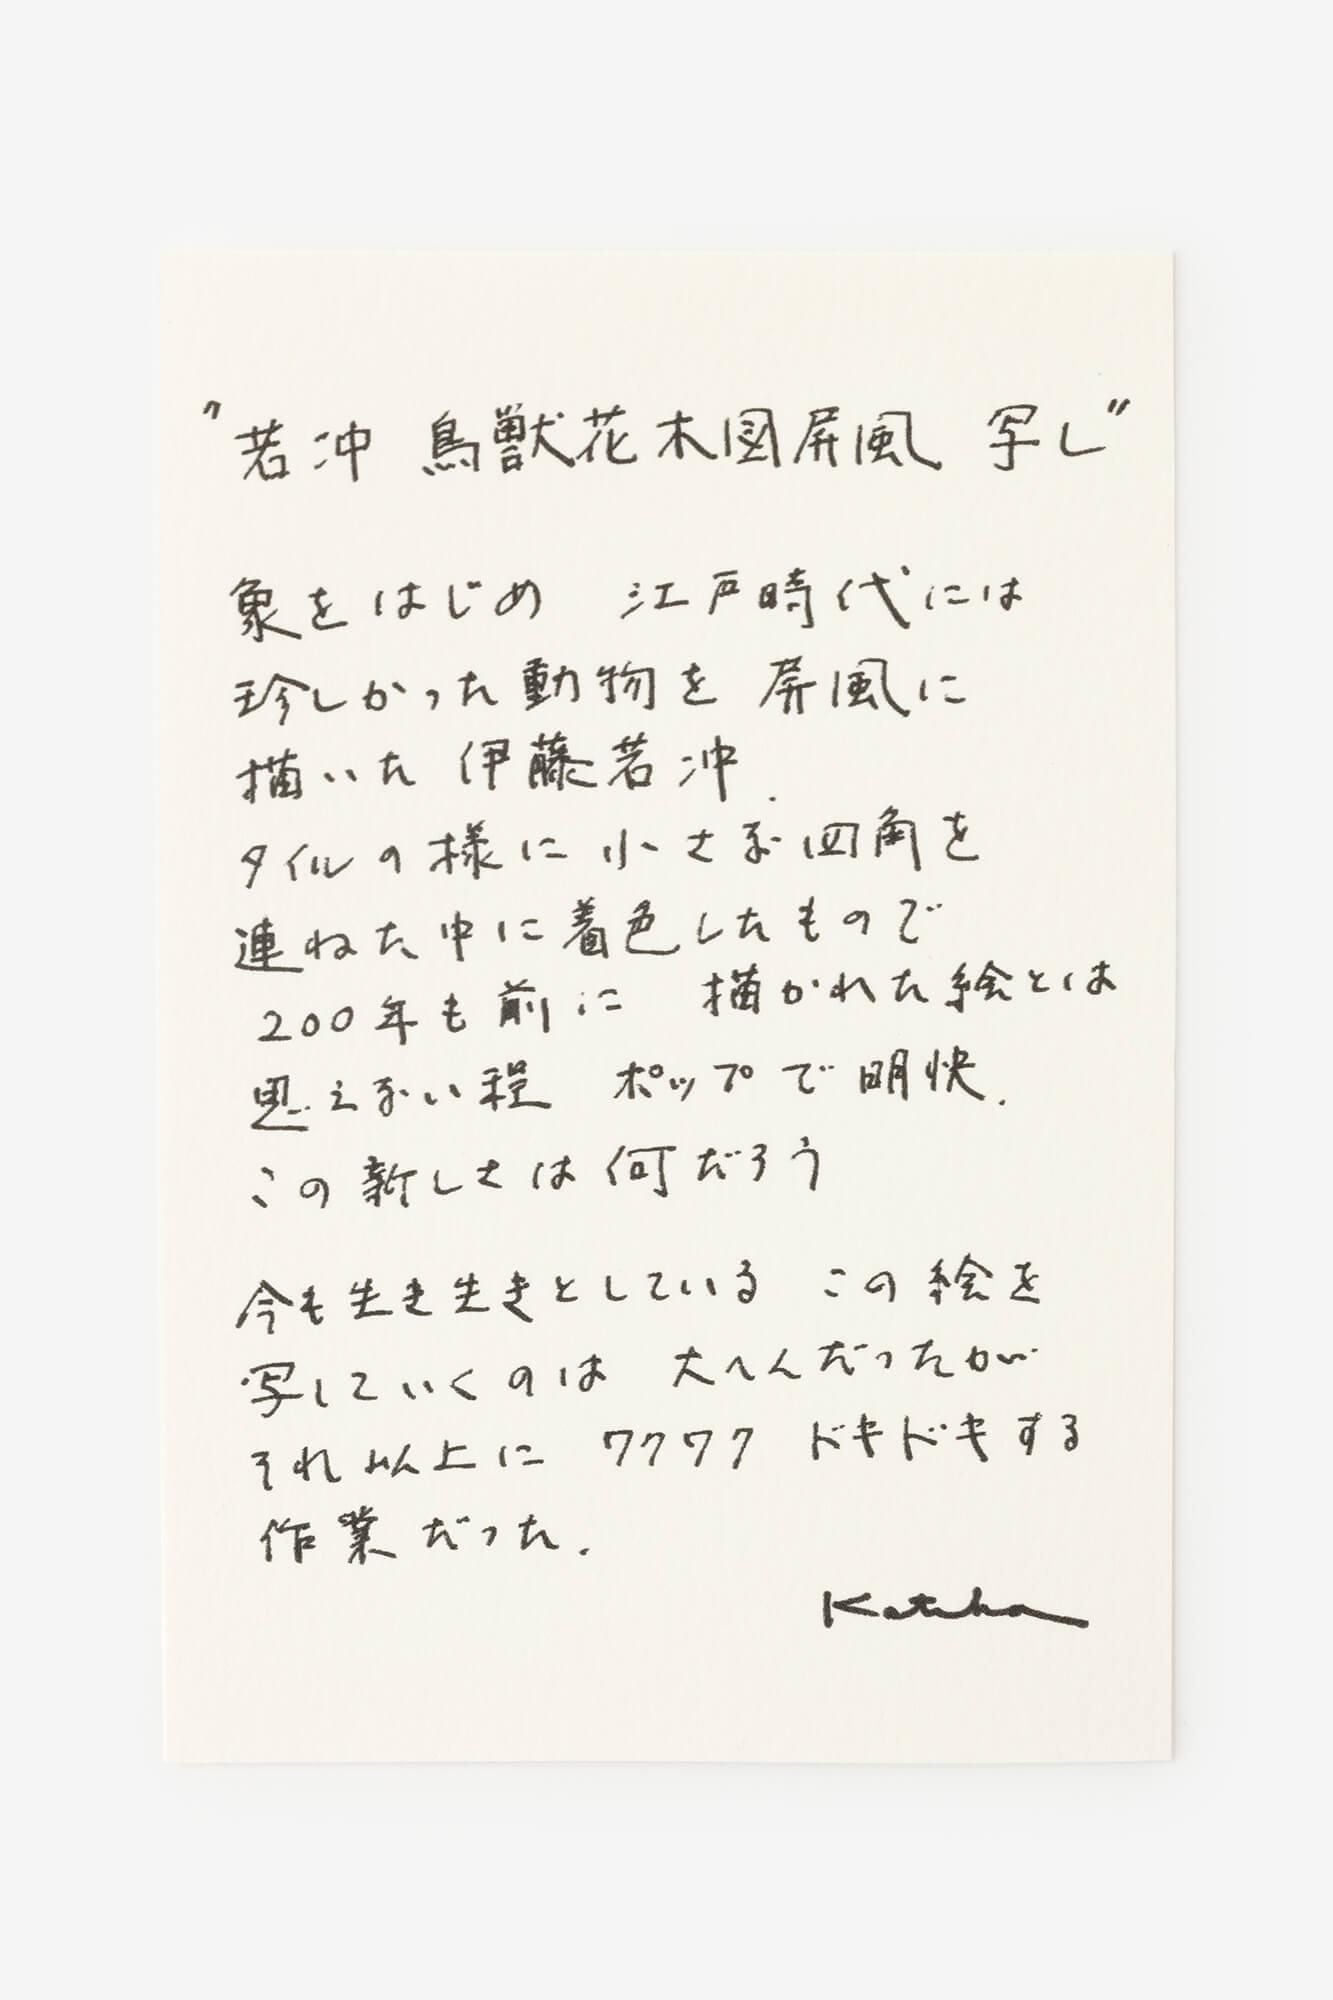 "若冲 鳥獣花木図屏風 写し"
象をはじめ 江戸時代には
珍しかった動物を 屏風に
描いた 伊藤若冲.
タイルの様に 小さな四角を
連ねた中に着色したもので
200年も前に 描かれた絵とは
思えない程 ポップで明快.
この新しさは何だろう
今も生き生きとしている この絵を
写していくのは 大へんだったが
それ以上に ワクワク ドキドキする
作業だった.
Katsha